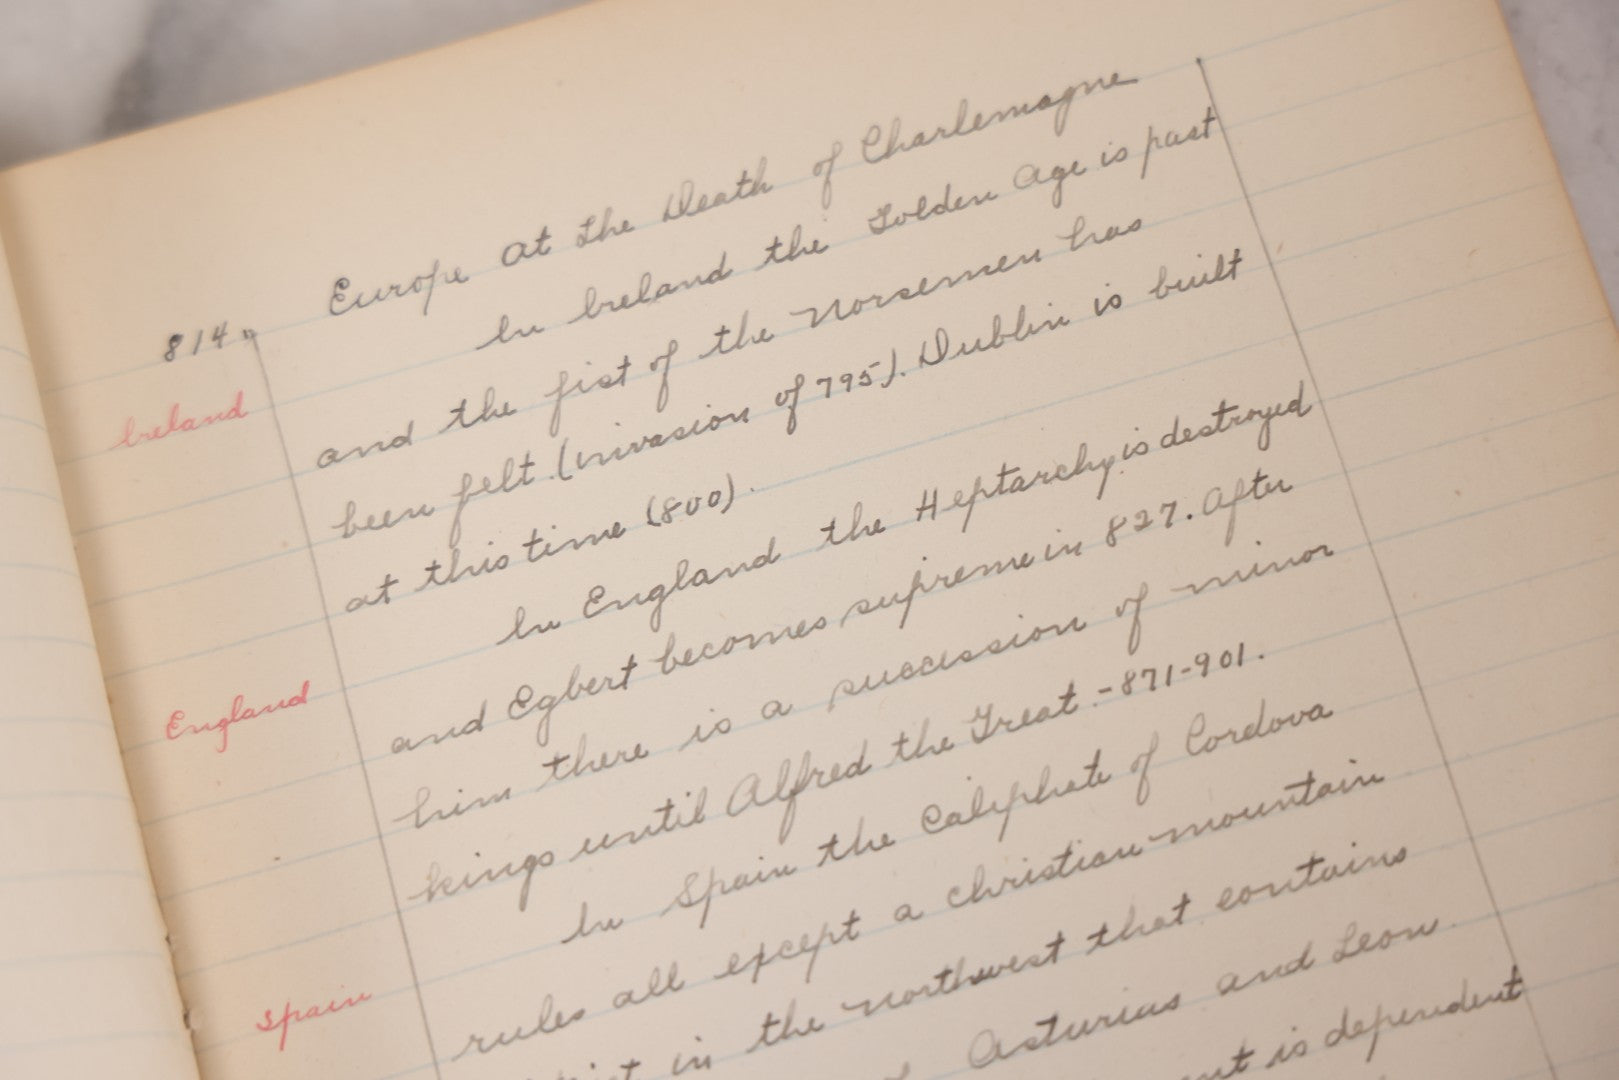 Europe at the Death of Charlemagne
814.
In Ireland the Golden Age is past
Ireland
and the fist of the Norsemen has
been felt. (invasion of 795). Dublin is built
at this time (800).
In England the Heptarchy is destroyed
England
and Egbert becomes supreme in 827. After
him there is a succession of minor
kings until Alfred the Great - 871-901.
In Spain the Caliphate of Cordova
Spain
rules all except a christian mountain
in the northwest that contains
Asturias and Leon.
is dependent